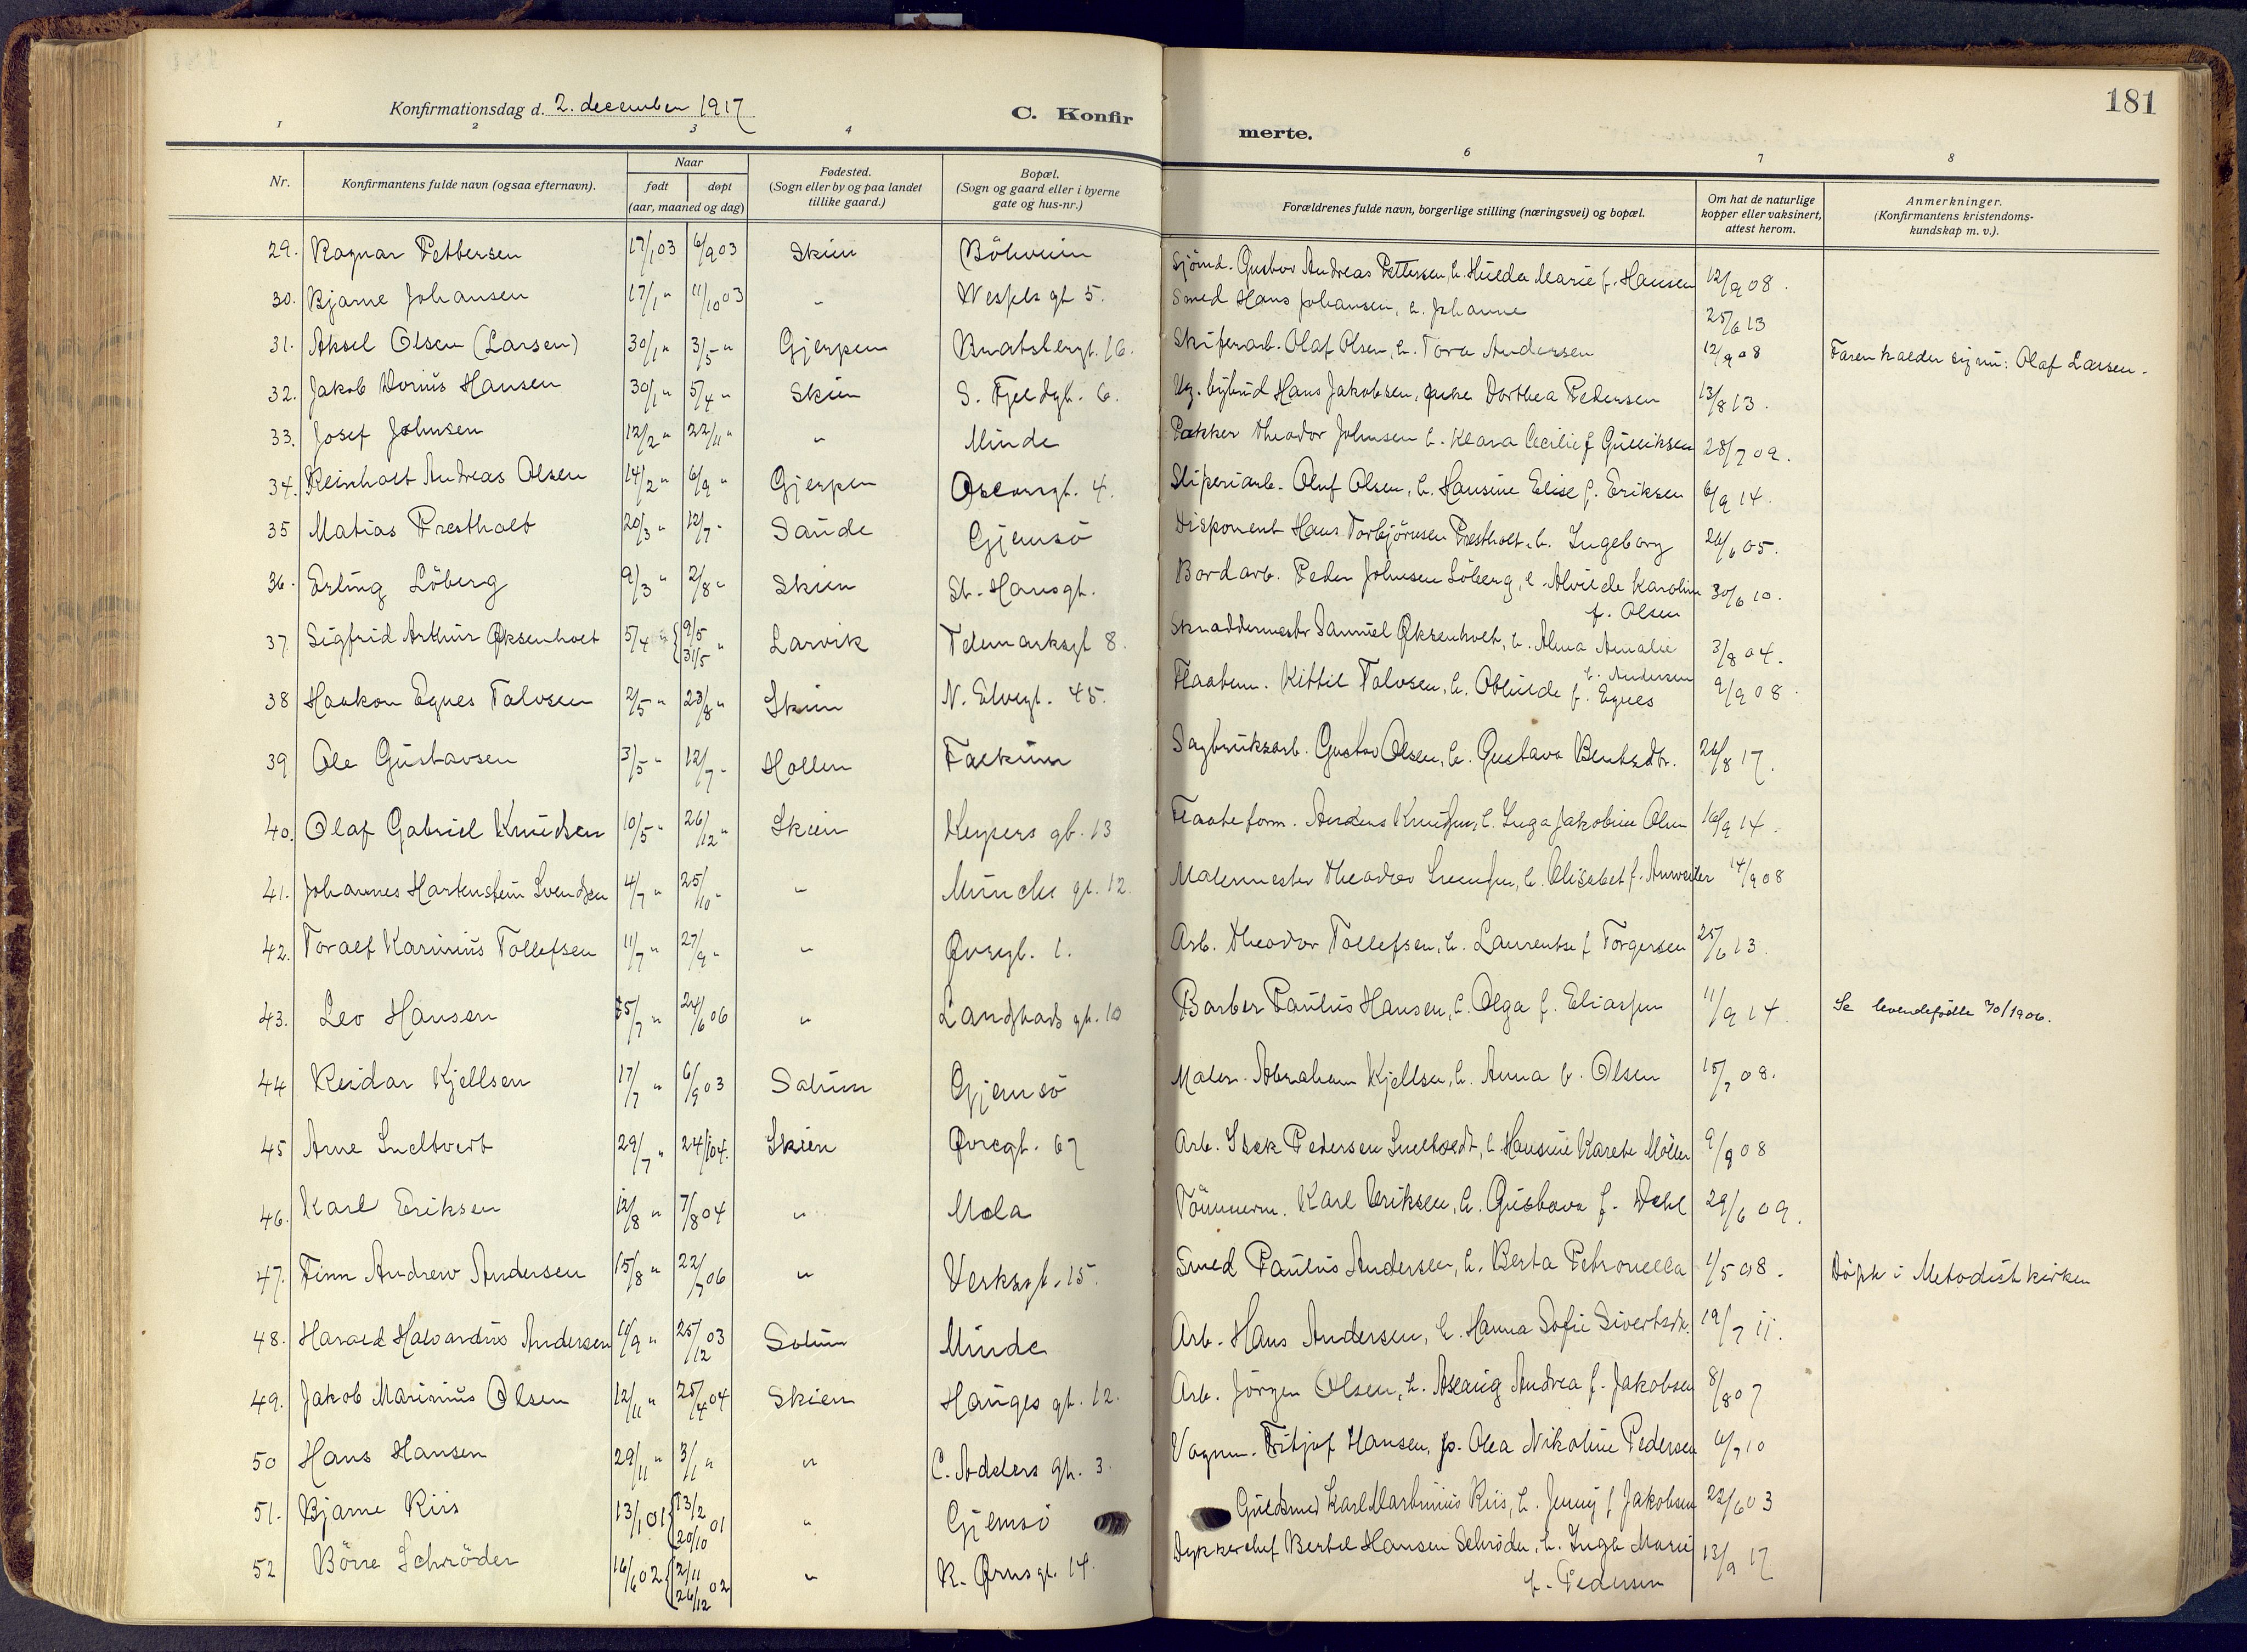 181
Konfirmationsdag d. 2. december 1917
C. Konfirmerte.
1 2 3 4 6 7 8
Nr. Konfirmantens fulde navn (ogsaa efternavn). Naar født døpt (aar, maaned og dag) Fødested. (Sogn eller by og paa landet tillike gaard.) Bopæl. (Sogn og gaard eller i byerne gate og hus-nr.) Forældrenes fulde navn, borgerlige stilling (næringsvei) og bopæl. Om hat de naturlige kopper eller vaksinert, attest herom. Anmerkninger. (Konfirmantens kristendomskundskap m. v.).
29. Ragnar Pettersen 17/1 03 6/9 03 Skien Bölevein Sjömd. Gustav Andreas Pettersen, h. Hulda Marie f. Hansen 12/9 08.
30. Bjarne Johansen 17/1 " 11/10 03 " Wesels gt 5. Smed Hans Johansen, h. Johanne 25/6 13
31. Aksel Olsen (Larsen) 30/1 " 3/5 " Gjerpen Bratsbergt. 16. Skiferarb. Olaf Olsen, h. Tora Andersen 12/9 08 Faren kalder sig nu: Olaf Larsen.
32. Jakob Dorius Hansen 30/1 " 5/4 " Skien S. Fjeldgt. 6. Ug. bybud Hans Jakobsen, pike Dorthea Pedersen 13/8 13.
33. Josef Johnsen 12/2 " 22/11 " " Minde Pakker Theodor Johnsen h. Klara Cecilie f Gulliksen 28/7 09.
34. Reinholt Andreas Olsen 14/2 " 6/9 " Gjerpen Oscarsgt. 4. Sliperiarb. Oluf Olsen, h. Hansine Elise f. Eriksen 6/9 14.
35 Matias Prestholt 20/3 " 12/7 " Saude Gjemsö Disponent Hans Torbjörnsen Prestholt, h. Ingeborg 26/6 05.
36. Erling Löberg 9/3 " 2/8 " Skien St. Hansgt. Bordarb. Peder Johnsen Löberg, h. Alvilde Karoline f. Olsen 30/6 10.
37 Sigfrid Arthur Øksenholt 5/4 " 9/5 31/5 " Larvik Telemarksgt 8. Skraddermester Samuel Øksenholt, h. Alma Amalie f. Andersen 3/8 04.
38 Haakon Egnes Talvsen 2/5 " 23/8 " Skien N. Elvegt. 45. Flaatem. Kittil Talvsen, h. Othilde f. Egnes 9/9 08.
39 Ole Gustavsen 3/5 " 12/7 " Hollen Falkum Sagbruksarb. Gustav Olsen, h. Gustava Bentsdtr. 26/8 17.
40. Olaf Gabriel Knudsen 10/5 " 26/12 " Skien Keysers gt. 13 Flaateform. Anders Knudsen, h. Inga Jakobine Olsen 16/9 14.
41. Johannes Hartenstein Svendsen 4/7 " 25/10 " " Munchs gt. 12. Malermester Theodor Svendsen, h. Elisabet f. Anweiler 14/9 08
42. Toralf Karinius Tollefsen 11/7 " 27/9 " " Øvregt. 1. Arb. Theodor Tollefsen, h. Laurentse f Torgersen 25/6 13.
43. Leo Hansen 15/7 " 24/6 06 " Landstads gt. 10 Barber Paulus Hansen, h. Olga f. Eliassen 11/9 14. Se levendefödte 70/1906.
44 Reidar Kjellsen 17/7 " 6/9 03 Solum Gjemsö Maler. Abraham Kjellsen, h. Anna f. Olsen 15/7 08.
45 Arne Sneltvert 29/7 " 24/1 04. Skien Øvregt. 67 Arb. Isak Pedersen Sneltvedt, h. Hansine Karete Möller 9/9 08
46. Karl Eriksen 12/8 " 7/8 04 " Mæla Tömmerm. Karl Eriksen, h. Gustava f. Dehl 29/6 09.
47. Finn Andrew Andersen 15/8 " 22/7 06 " Verksgt. 15. Smed Paulus Andersen, h. Berta Petronella 1/5 08. Döpt i Metodistkirken
48. Harald Halvardius Andersen 11/9 " 25/12 03 Solum Minde Arb. Hans Andersen, h. Hanna Sofie Sivertsdtr. 19/7 11.
49. Jakob Marinius Olsen 12/11 " 25/4 04 Skien Hauges gt. 12. Arb. Jörgen Olsen, h. Aslaug Andrea f. Jakobsen 8/8 07
50 Hans Hansen 29/11 " 3/11 " " C. Adelers gt. 3. Vognm. Fritjof Hansen, p. Olea Nikoline Pedersen 6/7 10
51. Bjarne Riis 13/1 01 13/2 20/10 01 " Gjemsö Guldsmed Karl Martinius Riis, h. Jenny f Jakobsen 22/6 03
52 Börre Schröder 16/6 02 2/11 26/12 02 " K. Ørnsgt. 14. Dykkerchef Bertel Hansen Schröder, h. Inga Marie f. Pedersen 13/9 17